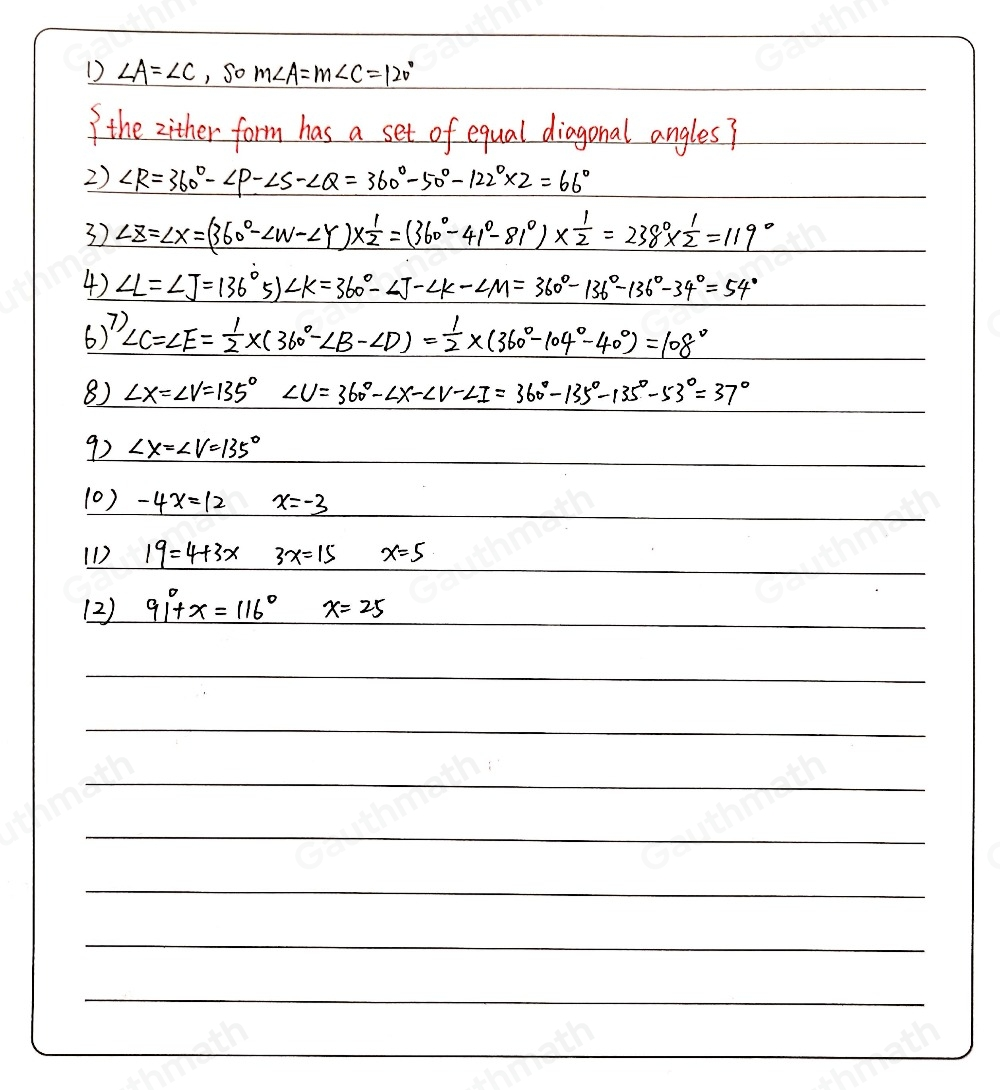 1) ∠A=∠C, so m∠A=m∠C=120°
{the zither form has a set of equal diagonal angles}
2) ∠R=360°-∠P-∠S-∠Q=360°-50°-122°×2=66°
3) ∠Z=∠X=(360°-∠W-∠Y)×1/2=(360°-41°-81°)×1/2=238°×1/2=119°
4) ∠L=∠J=136° 5) ∠K=360°-∠J-∠K-∠M=360°-136°-136°-34°=54°
6) 7) ∠C=∠E=1/2×(360°-∠B-∠D)=1/2×(360°-104°-40°)=108°
8) ∠X=∠V=135° ∠U=360°-∠X-∠V-∠I=360°-135°-135°-53°=37°
9) ∠X=∠V=135°
10) -4x=12 x=-3
11) 19=4+3x 3x=15 x=5
12) 91°+x=116° x=25
Gauthmath